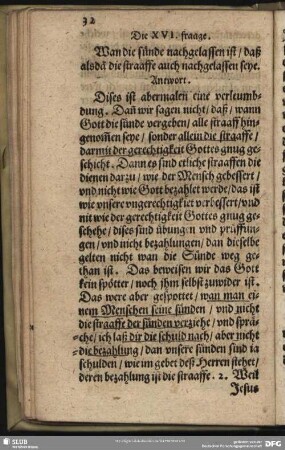 32
Die XVI. fraage.
Wan die sünde nachgelassen ist / daß
alsdā die straaffe auch nachgelassen seye.
Antwort.
Dises ist abermalen eine verleumb-
dung. Dañ wir sagen nicht / daß / wann
Gott die sünde vergeben / alle straaff hin-
genom̃en seye / sonder allein die straaffe /
darmit der gerechtigkeit Gottes gnug ge-
schicht. Dann es sind etliche straaffen die
dienen darzu / wie der Mensch gebessert /
und nicht wie Gott bezahlet werde / das ist
wie unsere ungerechtigkeit verbessert / und
nit wie der gerechtigkeit Gottes gnug ge-
schehe / dises sind übungen und prüffun-
gen / und nicht bezahlungen / dan dieselbe
gelten nicht wan die Sünde weg ge-
than ist. Das beweisen wir das Gott
kein spötter / noch ihm selbst zuwider ist.
Das were aber gespottet / wan man ei-
nem Menschen seine sünden / und nicht
die straaffe der sünden verziehe / und sprä-
che / ich laß dir die schuld nach / aber nicht
die bezahlung / dan unsere sünden sind ja
schulden / wie im gebet deß Herren stehet /
deren bezahlung ist die straaffe. 2. Weil
Jesus
SLUB
DFG